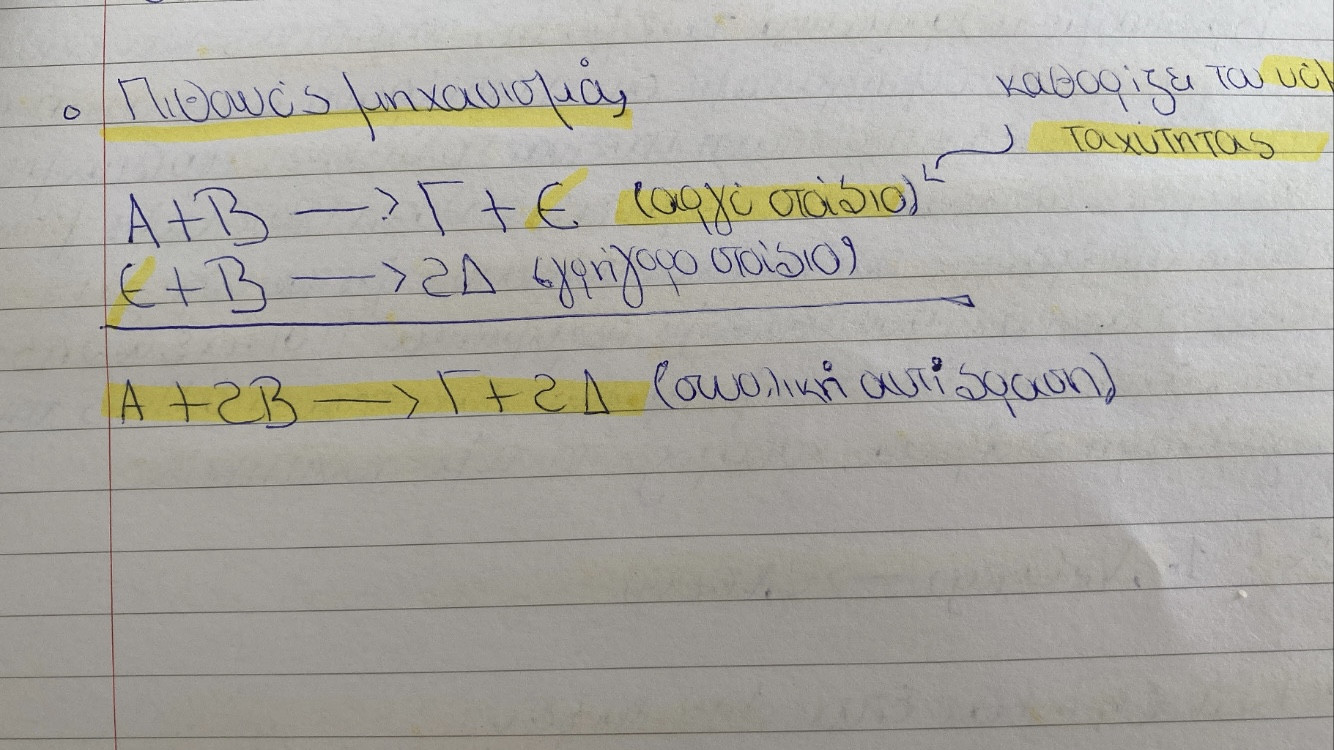 καθορίζει τον νόμ
ο Πιθανός μηχανισμός
ταχύτητας
Α + Β → Γ + Ε (αργό στάδιο)
Ε + Β → 2Δ (γρήγορο στάδιο)
Α + 2Β → Γ + 2Δ (συνολική αντίδραση)